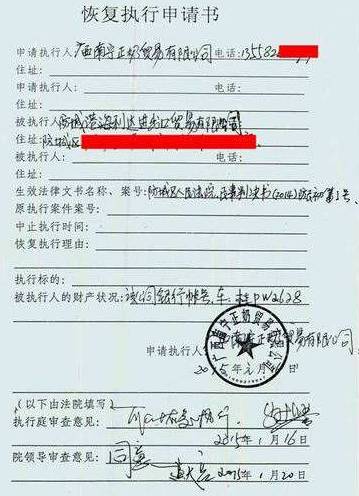 恢复执行申请书
申请执行人:广西南宁正扬贸易有限公司 电话:135582
住址:
住址:
被执行人:防城港海利达进出口贸易有限公司
住址:防城区
被执行人: 电话:
住址:
生效法律文书名称、案号:防城区人民法院,民事判决书(2014)防初第1号、
原执行案件案号:
中止执行时间:
恢复执行理由:
执行标的:
被执行人的财产状况:该公司银行帐号,车,桂PW2628
申请执行人:广西南宁正扬贸易有限公司
2015年元月 日
(以下由法院填写)
执行庭审查意见:
2015年1月16日
院领导审查意见:同意
2015年1月20日